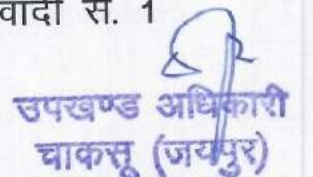 वादी सं. 1
उपखण्ड अधिकारी
चाकसू (जयपुर)